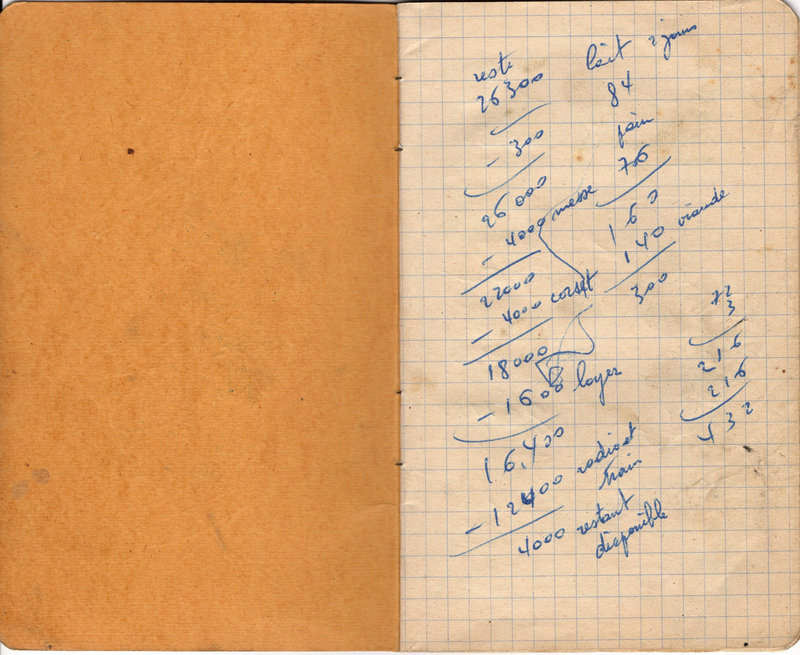 reste
26300
- 300
26000
- 4000 messe
22000
- 4000 corset
18000
- 1600 loyer
16,400
- 12400 radio et
train
4000 restant
disponible
lait 2 jours
84
pain
76
160
140 viande
300
72
3
216
216
432